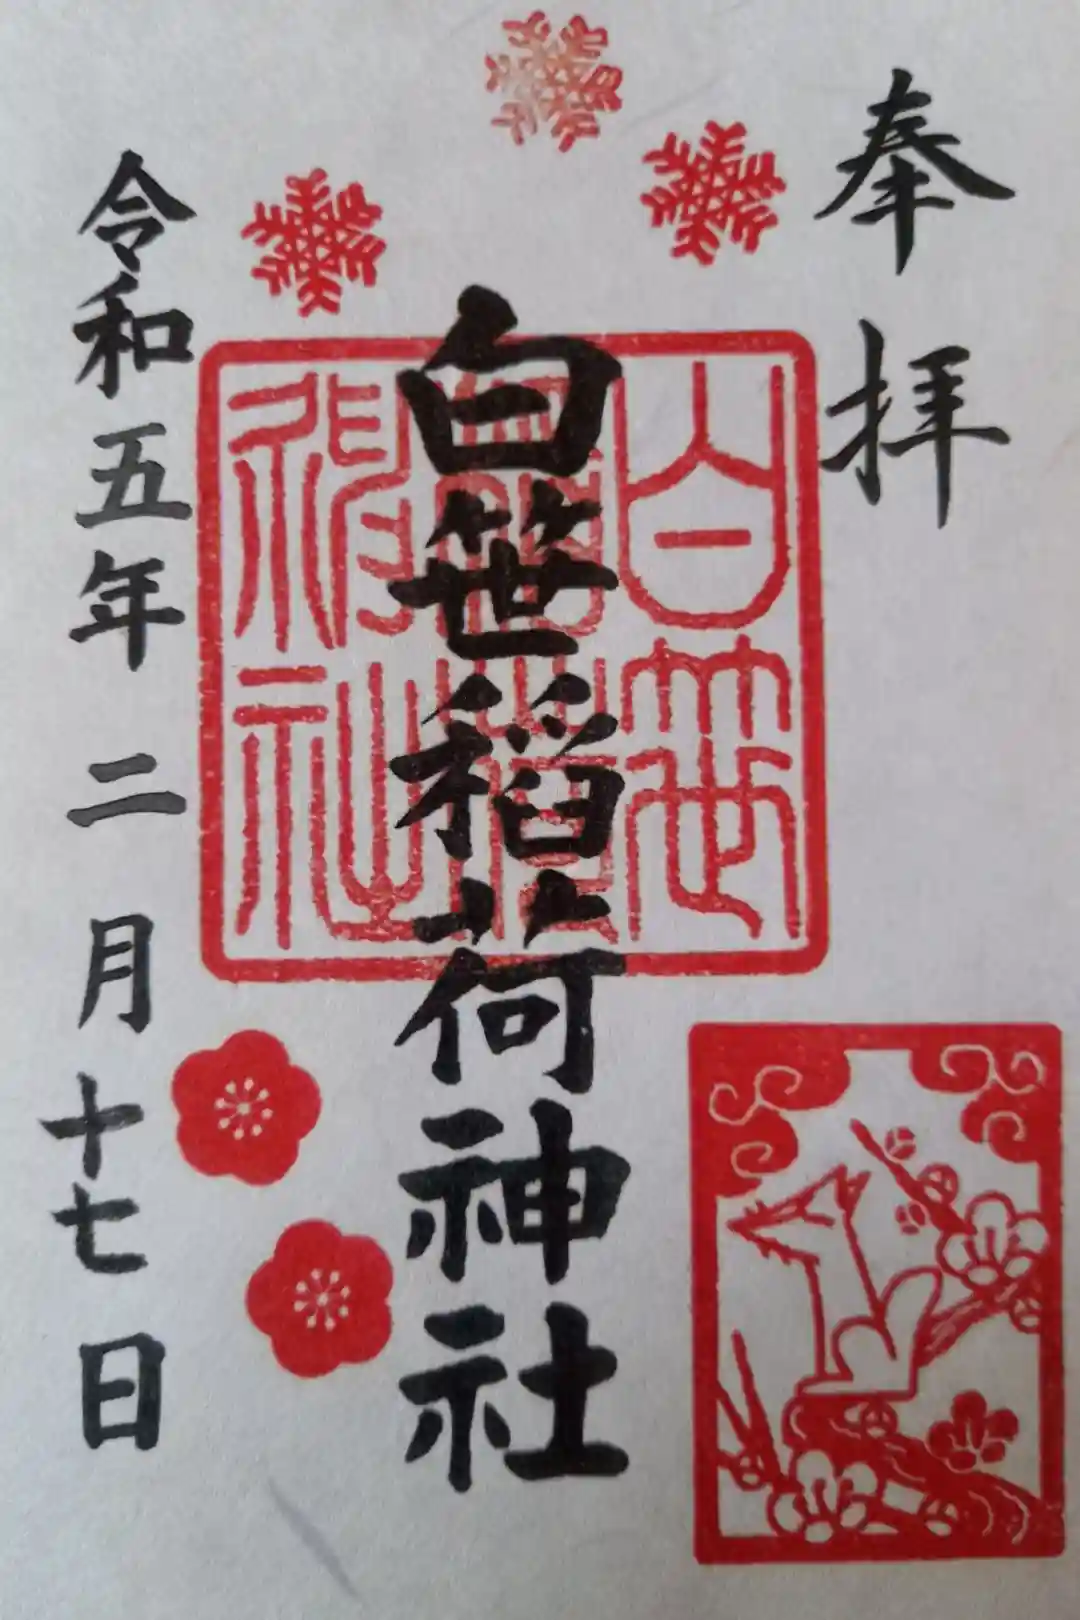 奉拝
白笹稲荷神社
白笹稲荷神社
令和五年二月十七日